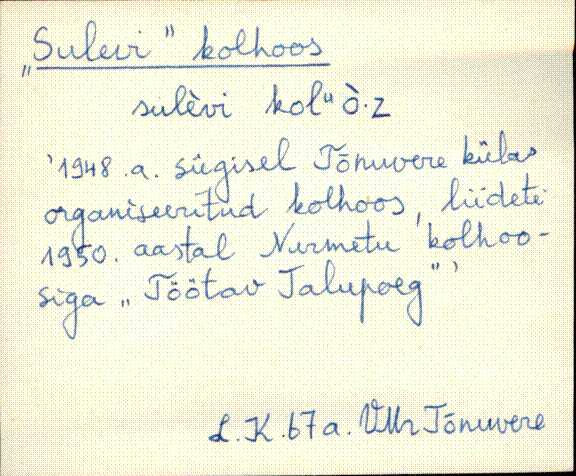 „Sulevi" kolhoos
sulèvi kol"ò·z
'1948.a. sügisel Tõnuvere külas
organiseeritud kolhoos, liideti
1950. aastal Nurmetu kolhoo-
siga „Töötav Talupoeg"'
L.K. 67 a. VMr Tõnuvere